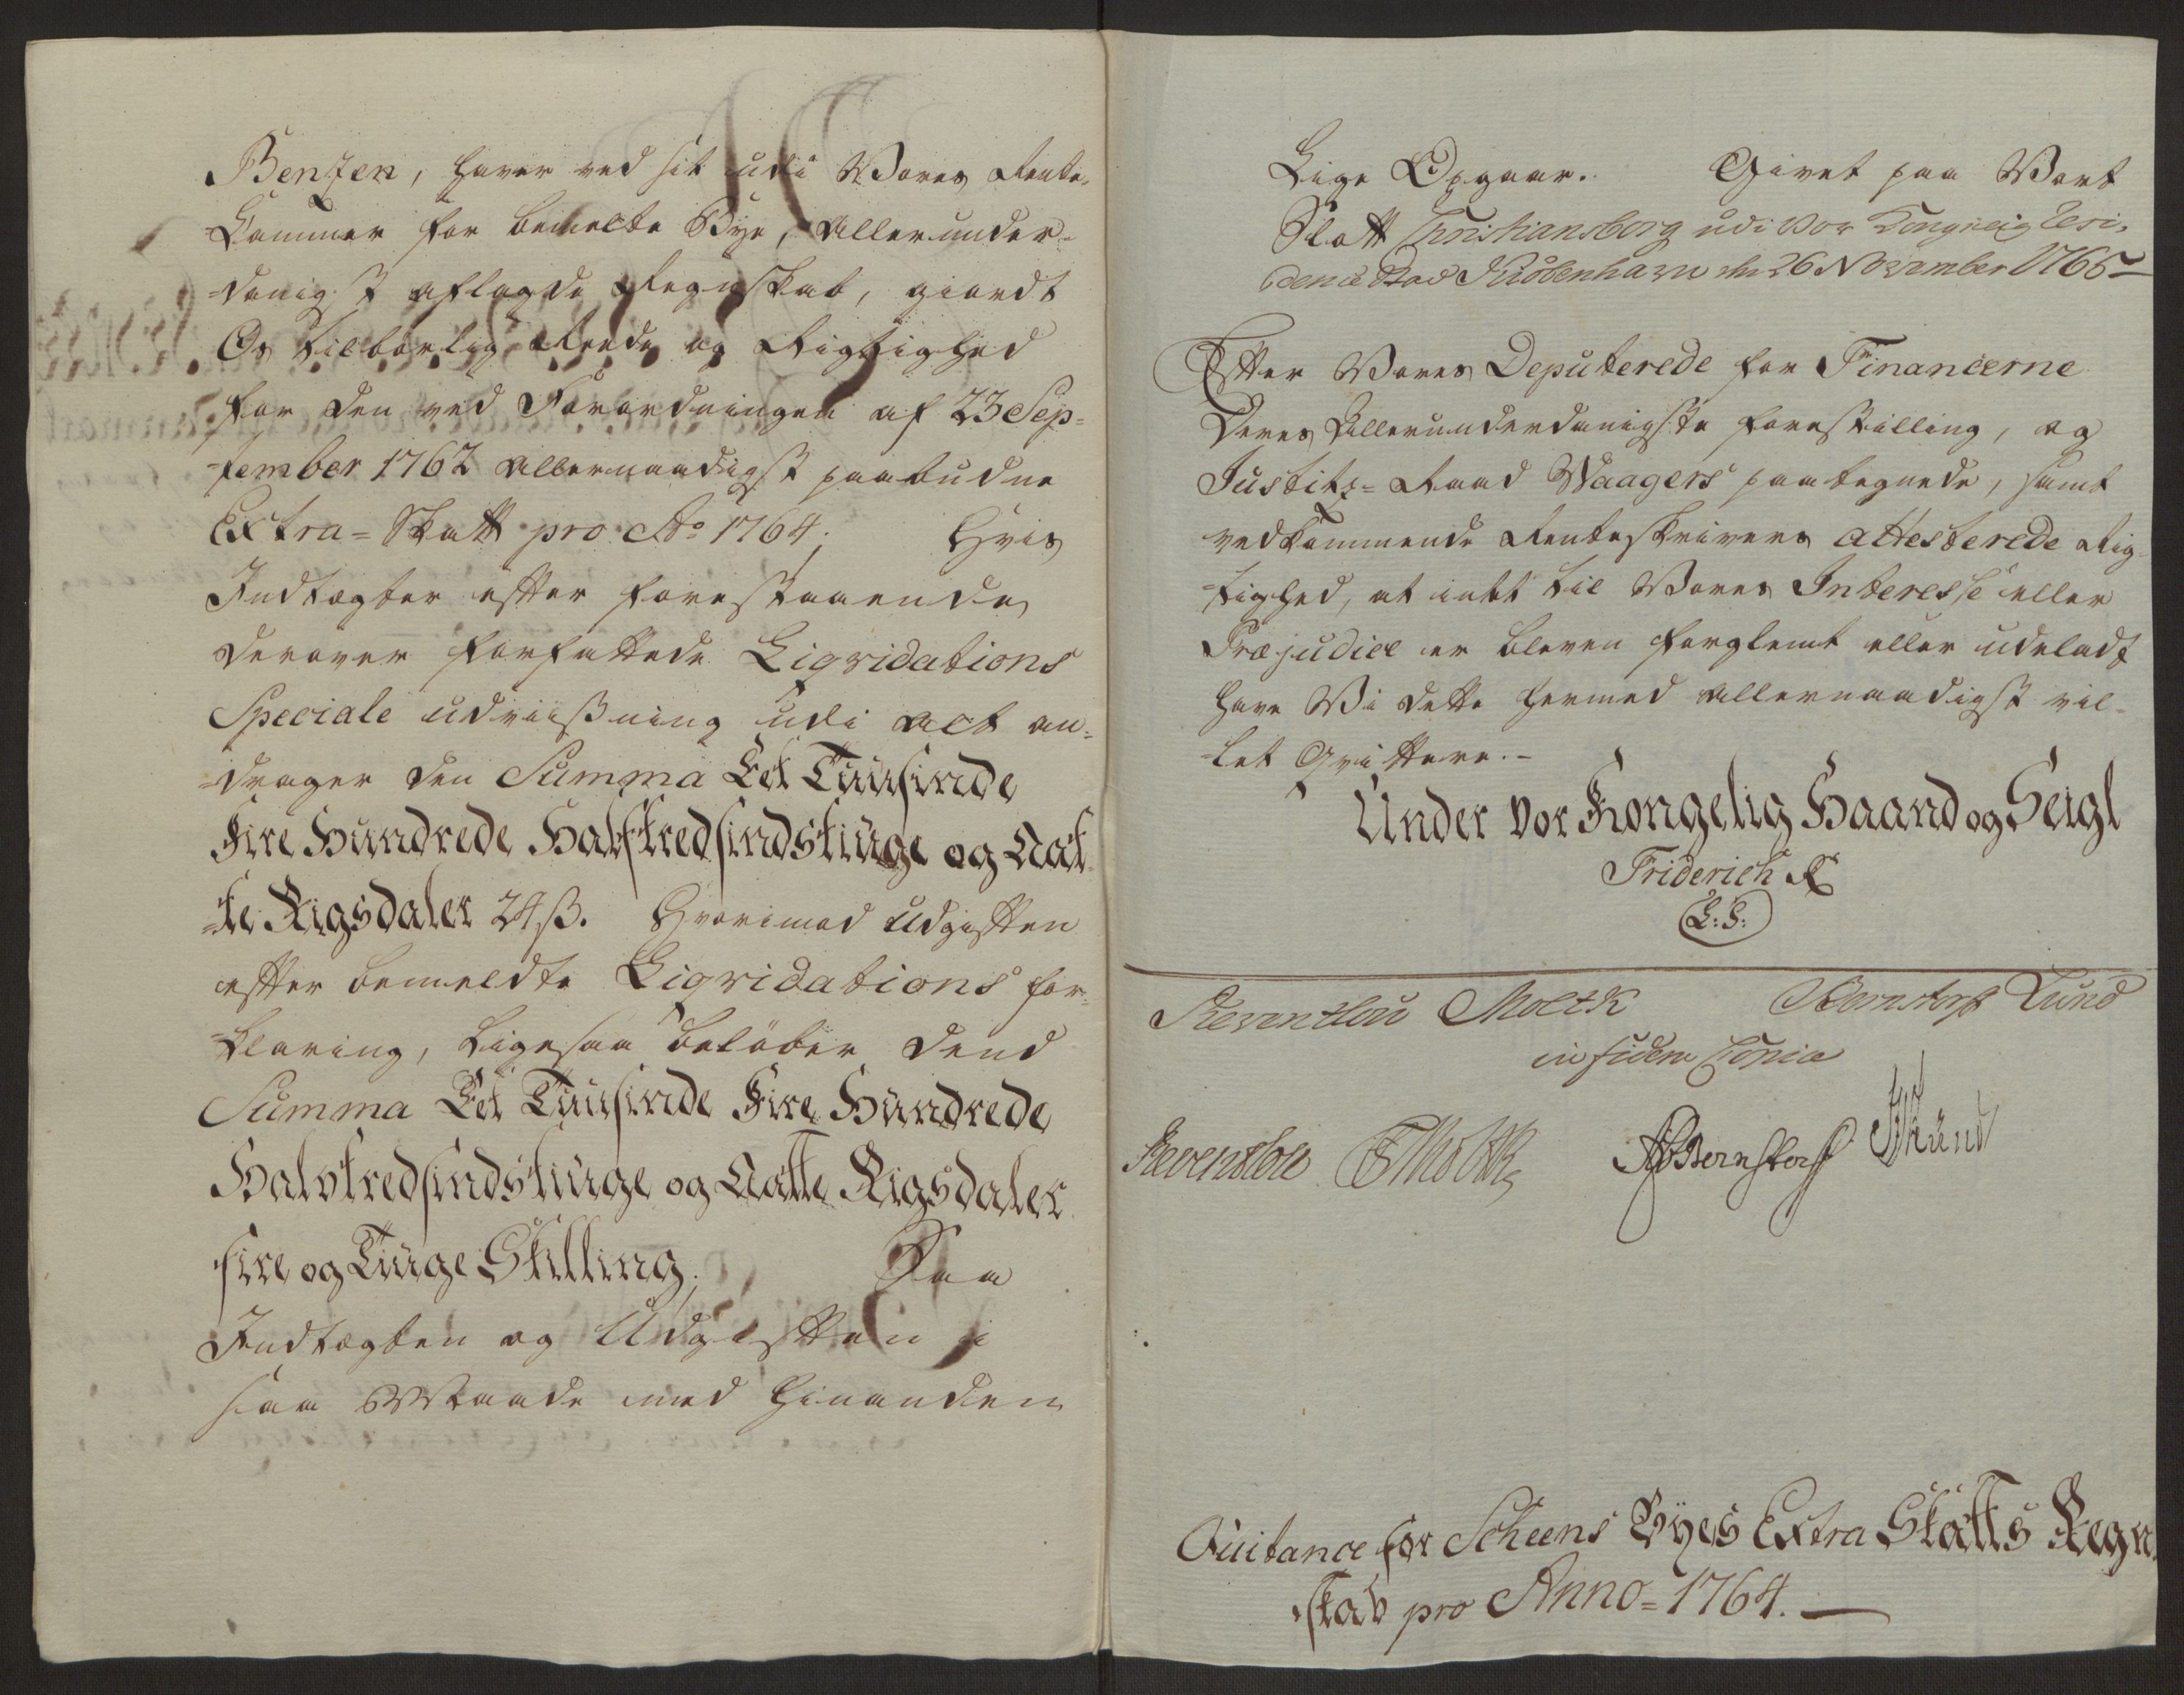 Bentzen, haver ved sit udi Vores Rente-
Cammer for bemelte Bye, Allerunder-
-danigst aflagde Regnskab, giordt
Os tilbørlig Reede og Rigtighed
for den ved Forordningen af 23 Sep-
-tember 1762 allernaadigst paabudne
Extra-Skatt pro Ao 1764. Hvis
Indtægter efter forestaaende
derover forfattede Liqvidations
Speciale udviisning udi alt an-
-drager den Summa Eet Tuusinde
Fire Hundrede Halvtredsindstiuge og Aat-
-te Rigsdaler 24 ß. Hvorimod Udgiften
efter bemeldte Liqvidations for-
-klaring, ligesaa beløber dend
Summa Eet Tuusinde Fire Hundrede
Halvtredsindstiuge og Aatte Rigsdaler
fire og Tiuge Skilling. Saa
Indtægten og Udgiften i
saa Maade med hinanden
Lige Opgaar. Givet paa Vort
Slott Christiansborg udi Vor Kongelig Resi-
dence Stad Kiøbenhavn den 26 November 1765
Efter Vores Deputerede for Financerne
Deres Allerunderdanigste forestilling, og
Justitz-Raad Waagers paategnede, samt
vedkommende Renteskrivers attesterede Rig-
-tighed, at intet til Vores Interesse eller
Præjudice er bleven forglemt eller udeladt
have Vi dette hermed allernaadigst vil-
-let Qvittere.
Under Vor Kongelig Haand og Seigl
Friderich R
L: S:
Reventlou Moltk Bernstorff Lund
in fidem Copiæ
Reventlou Moltke Bernstorff Lund
Quitance for Scheens Byes Extra Skatts Regn-
-skab pro Anno = 1764.